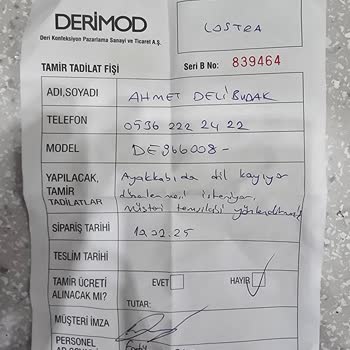 DERİMOD
Deri Konfeksiyon Pazarlama Sanayi ve Ticaret A.Ş.
LOSTRA
TAMİR TADİLAT FİŞİ
Seri B No: 839464
ADI,SOYADI AHMET DELİBUDAK
TELEFON 0536 222 24 22
MODEL DE966008-
YAPILACAK, TAMİR TADİLATLAR
Ayakkabıda dil kayıyor
düzelenmesi isteniyor,
müşteri temsilcisi yönlendirmesi
SİPARİŞ TARİHİ
TESLİM TARİHİ
TAMİR ÜCRETİ ALINACAK MI?
EVET
HAYIR
TUTAR:
MÜŞTERİ İMZA
PERSONEL